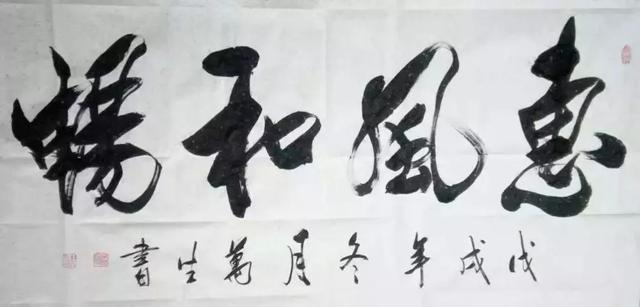 惠風和暢
戊戌年冬月萬生書